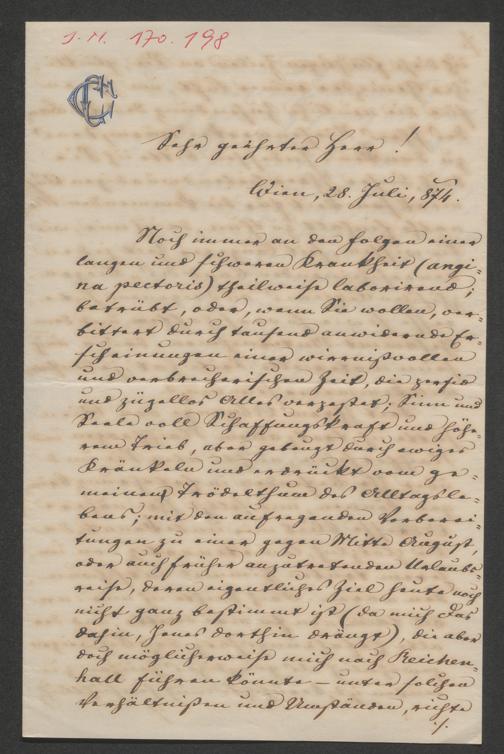 J. N. 170.198
Sehr geehrter Herr!
Wien, 28. Juli, 874.
Noch immer an den Folgen einer
langen und schweren Krankheit (angi-
na pectoris) theilweise laborirend;
betrübt, oder, wenn Sie wollen, ver-
bittert durch tausend anwidernde Er-
scheinungen einer wirrnißvollen
und verbrecherischen Zeit, die
und zügellos Alles; Sinn und
Seele voll Schaffungskraft und höhe-
rem Trieb, aber gebeugt durch ewiges
Kränkeln und erdrückt vom ge-
meinen Trödelthum des Alltagsle-
bens; mit den aufregenden Vorberei-
tungen zu einer gegen Mitte August,
oder auch früher anzutretenden Urlaubs-
reise, deren eigentliches Ziel heute noch
nicht ganz bestimmt ist (da mich Das
dahin, Jenes dorthin drängt), die aber
doch möglicherweise mich nach Reichen-
hall führen könnte – unter solchen
Verhältnißen und Umständen, richte
./.